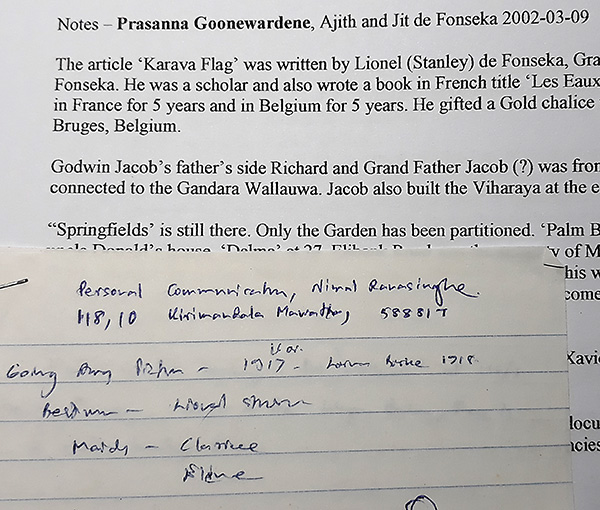 Notes – Prasanna Goonewardene, Ajith and Jit de Fonseka 2002-03-09
The article ‘Karava Flag’ was written by Lionel (Stanley) de Fonseka, Gra
Fonseka. He was a scholar and also wrote a book in French title ‘Les Eaux
in France for 5 years and in Belgium for 5 years. He gifted a Gold chalice
Bruges, Belgium.
Godwin Jacob’s father’s side Richard and Grand Father Jacob (?) was fron
connected to the Gandara Wallauwa. Jacob also built the Viharaya at the e
“‘Springfields’ is still there. Only the Garden has been partitioned. ‘Palm B
uncle Donald’s house. ‘Delma’ at 27, Elibank Road
y of M
his w
come
Xavie
locu
ncies
Personal Communication, Nimal Ranasinghe.
118,10 Kirimandala Mawatha, 58881
Going Away - 1917 - 1918
Bestman - Lionel
Maids - Clarice